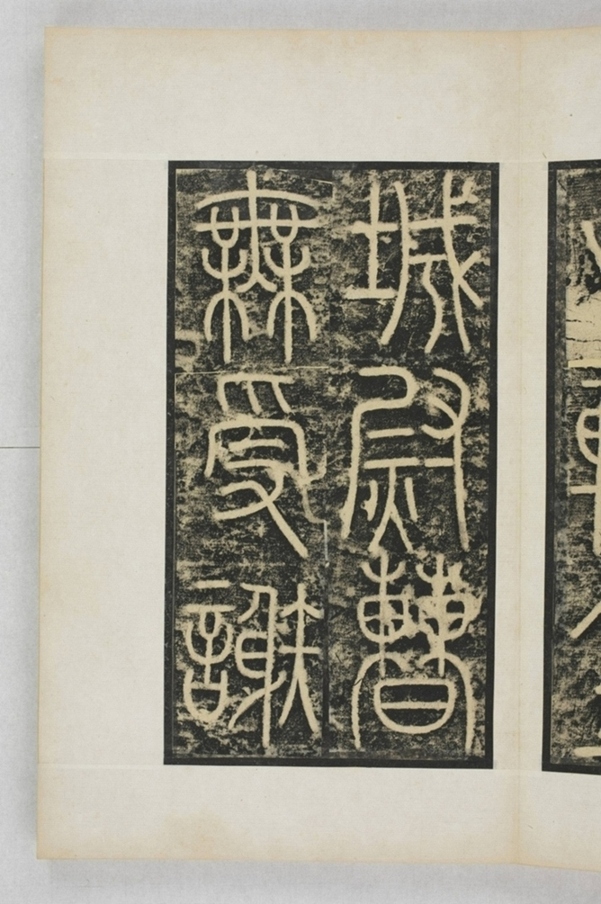 城尉曹
無受謝